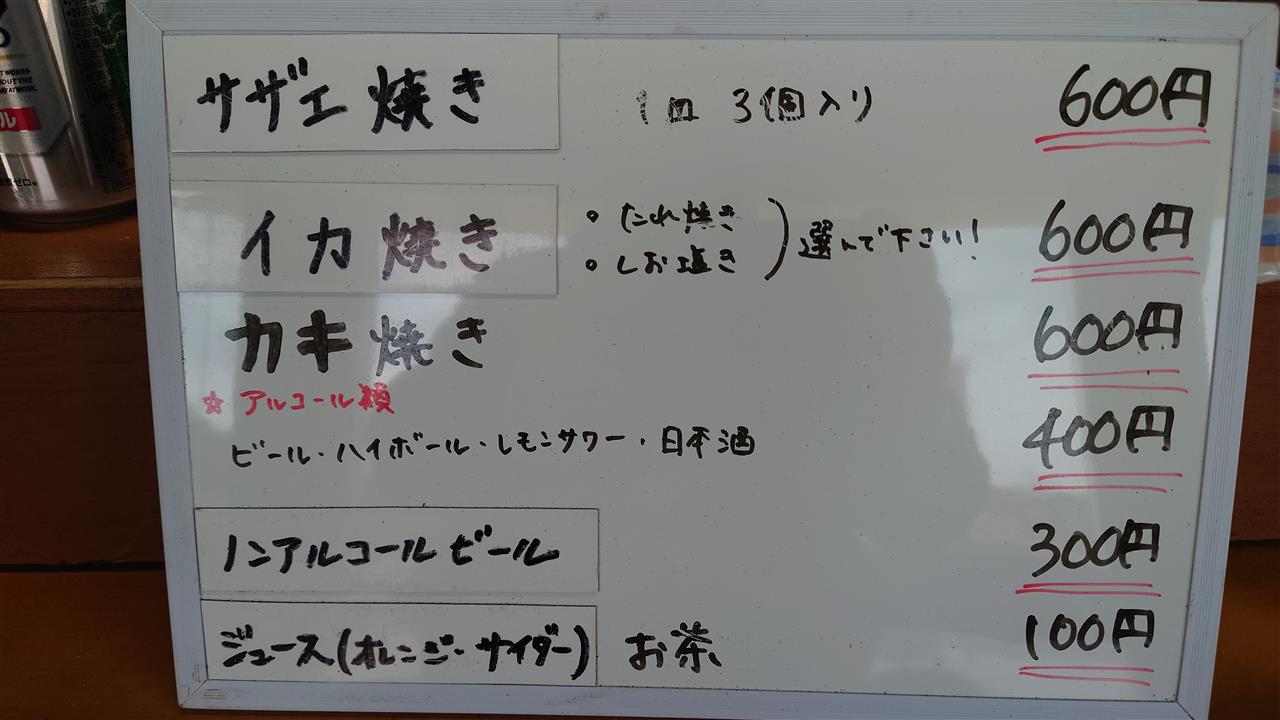 サザエ焼き 1皿 3個入り 600円
イカ焼き
。たれ焼き
。しお塩き
選んで下さい! 600円
カキ焼き 600円
☆ アルコール類
ビール・ハイボール・レモンサワー・日本酒 400円
ノンアルコールビール 300円
ジュース(オレンジ・サイダー) お茶 100円